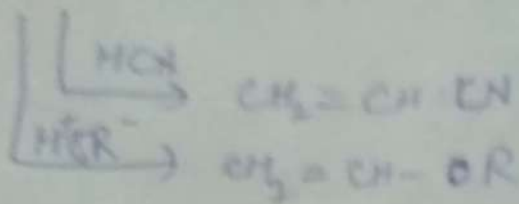 HCN
CH₂ = CH CN
H⁺OR⁻
CH₂ = CH - OR